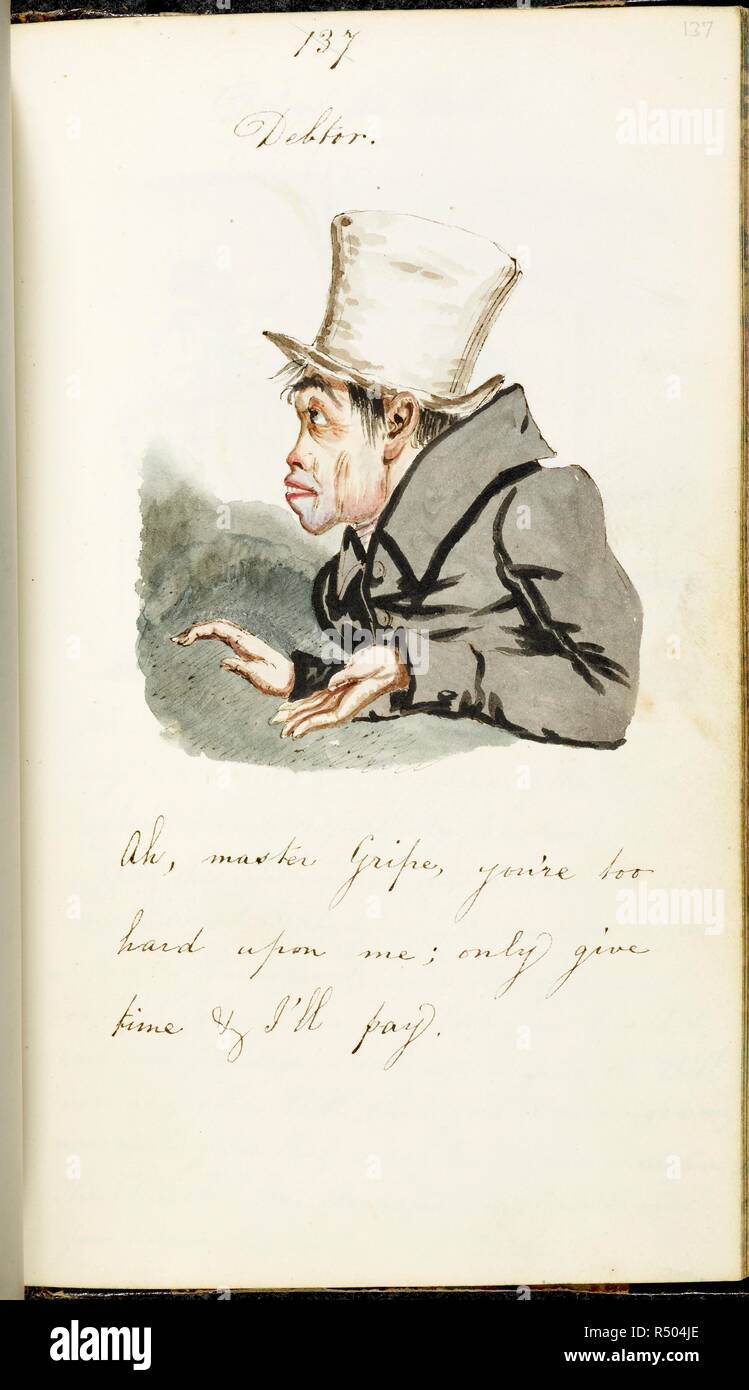 137
137
Debtor.
Ah, master Gripe, you're too
hard upon me; only give
time & I'll pay.
alamy
alamy
alamy
a
a
a
a
a
a
a
alamy
Image ID: R504JE
www.alamy.com